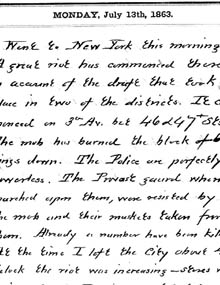 MONDAY, July 13th, 1863.
Went to New York this morning
A great riot has commenced there
on account of the draft that took
place in two of the districts. It com
menced on 3rd Av. bet 46 & 47th Sts
The mob has burned the block of b
ings down. The Police are perfectly
powerless. The Provost guard when
marched upon them, were resisted by
the mob and their muskets taken from
them. Already a number have been kil
At the time I left the City about 4
oclock the riot was increasing – stores